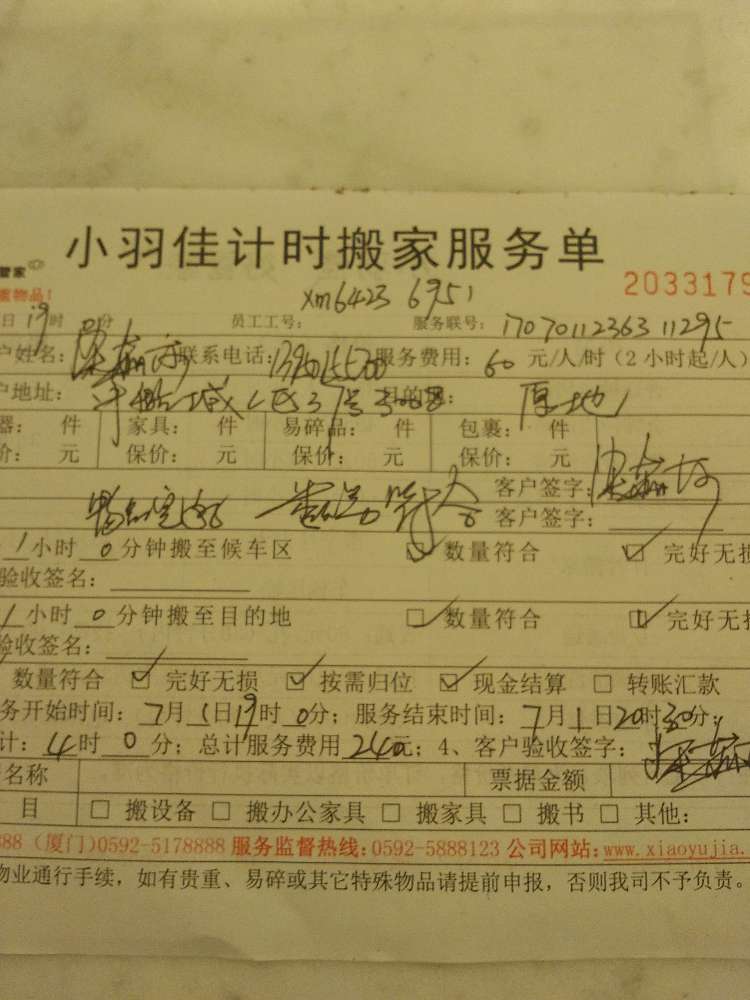 小羽佳计时搬家服务单
管家
xm6423 6951
2033179
日 19时 分 员工工号: 服务联号: 1707011236311295
户姓名: 联系电话: 服务费用: 60 元/人/时(2小时起/人)
户地址: 目的地: 原地
器: 件 家具: 件 易碎品: 件 包裹: 件
价: 元 保价: 元 保价: 元 保价: 元
客户签字:
客户签字:
1小时 0分钟搬至候车区 数量符合 完好无损
验收签名:
1小时 0分钟搬至目的地 数量符合 完好无损
验收签名:
数量符合 完好无损 按需归位 现金结算 转账汇款
务开始时间: 7月1日19时0分; 服务结束时间: 7月1日20时30分;
计: 4时0分; 总计服务费用 240元; 4、客户验收签字:
名称 票据金额
目 搬设备 搬办公家具 搬家具 搬书 其他:
888 (厦门)0592-5178888 服务监督热线:0592-5888123 公司网站:www.xiaoyujia.
物业通行手续，如有贵重、易碎或其它特殊物品请提前申报，否则我司不予负责。